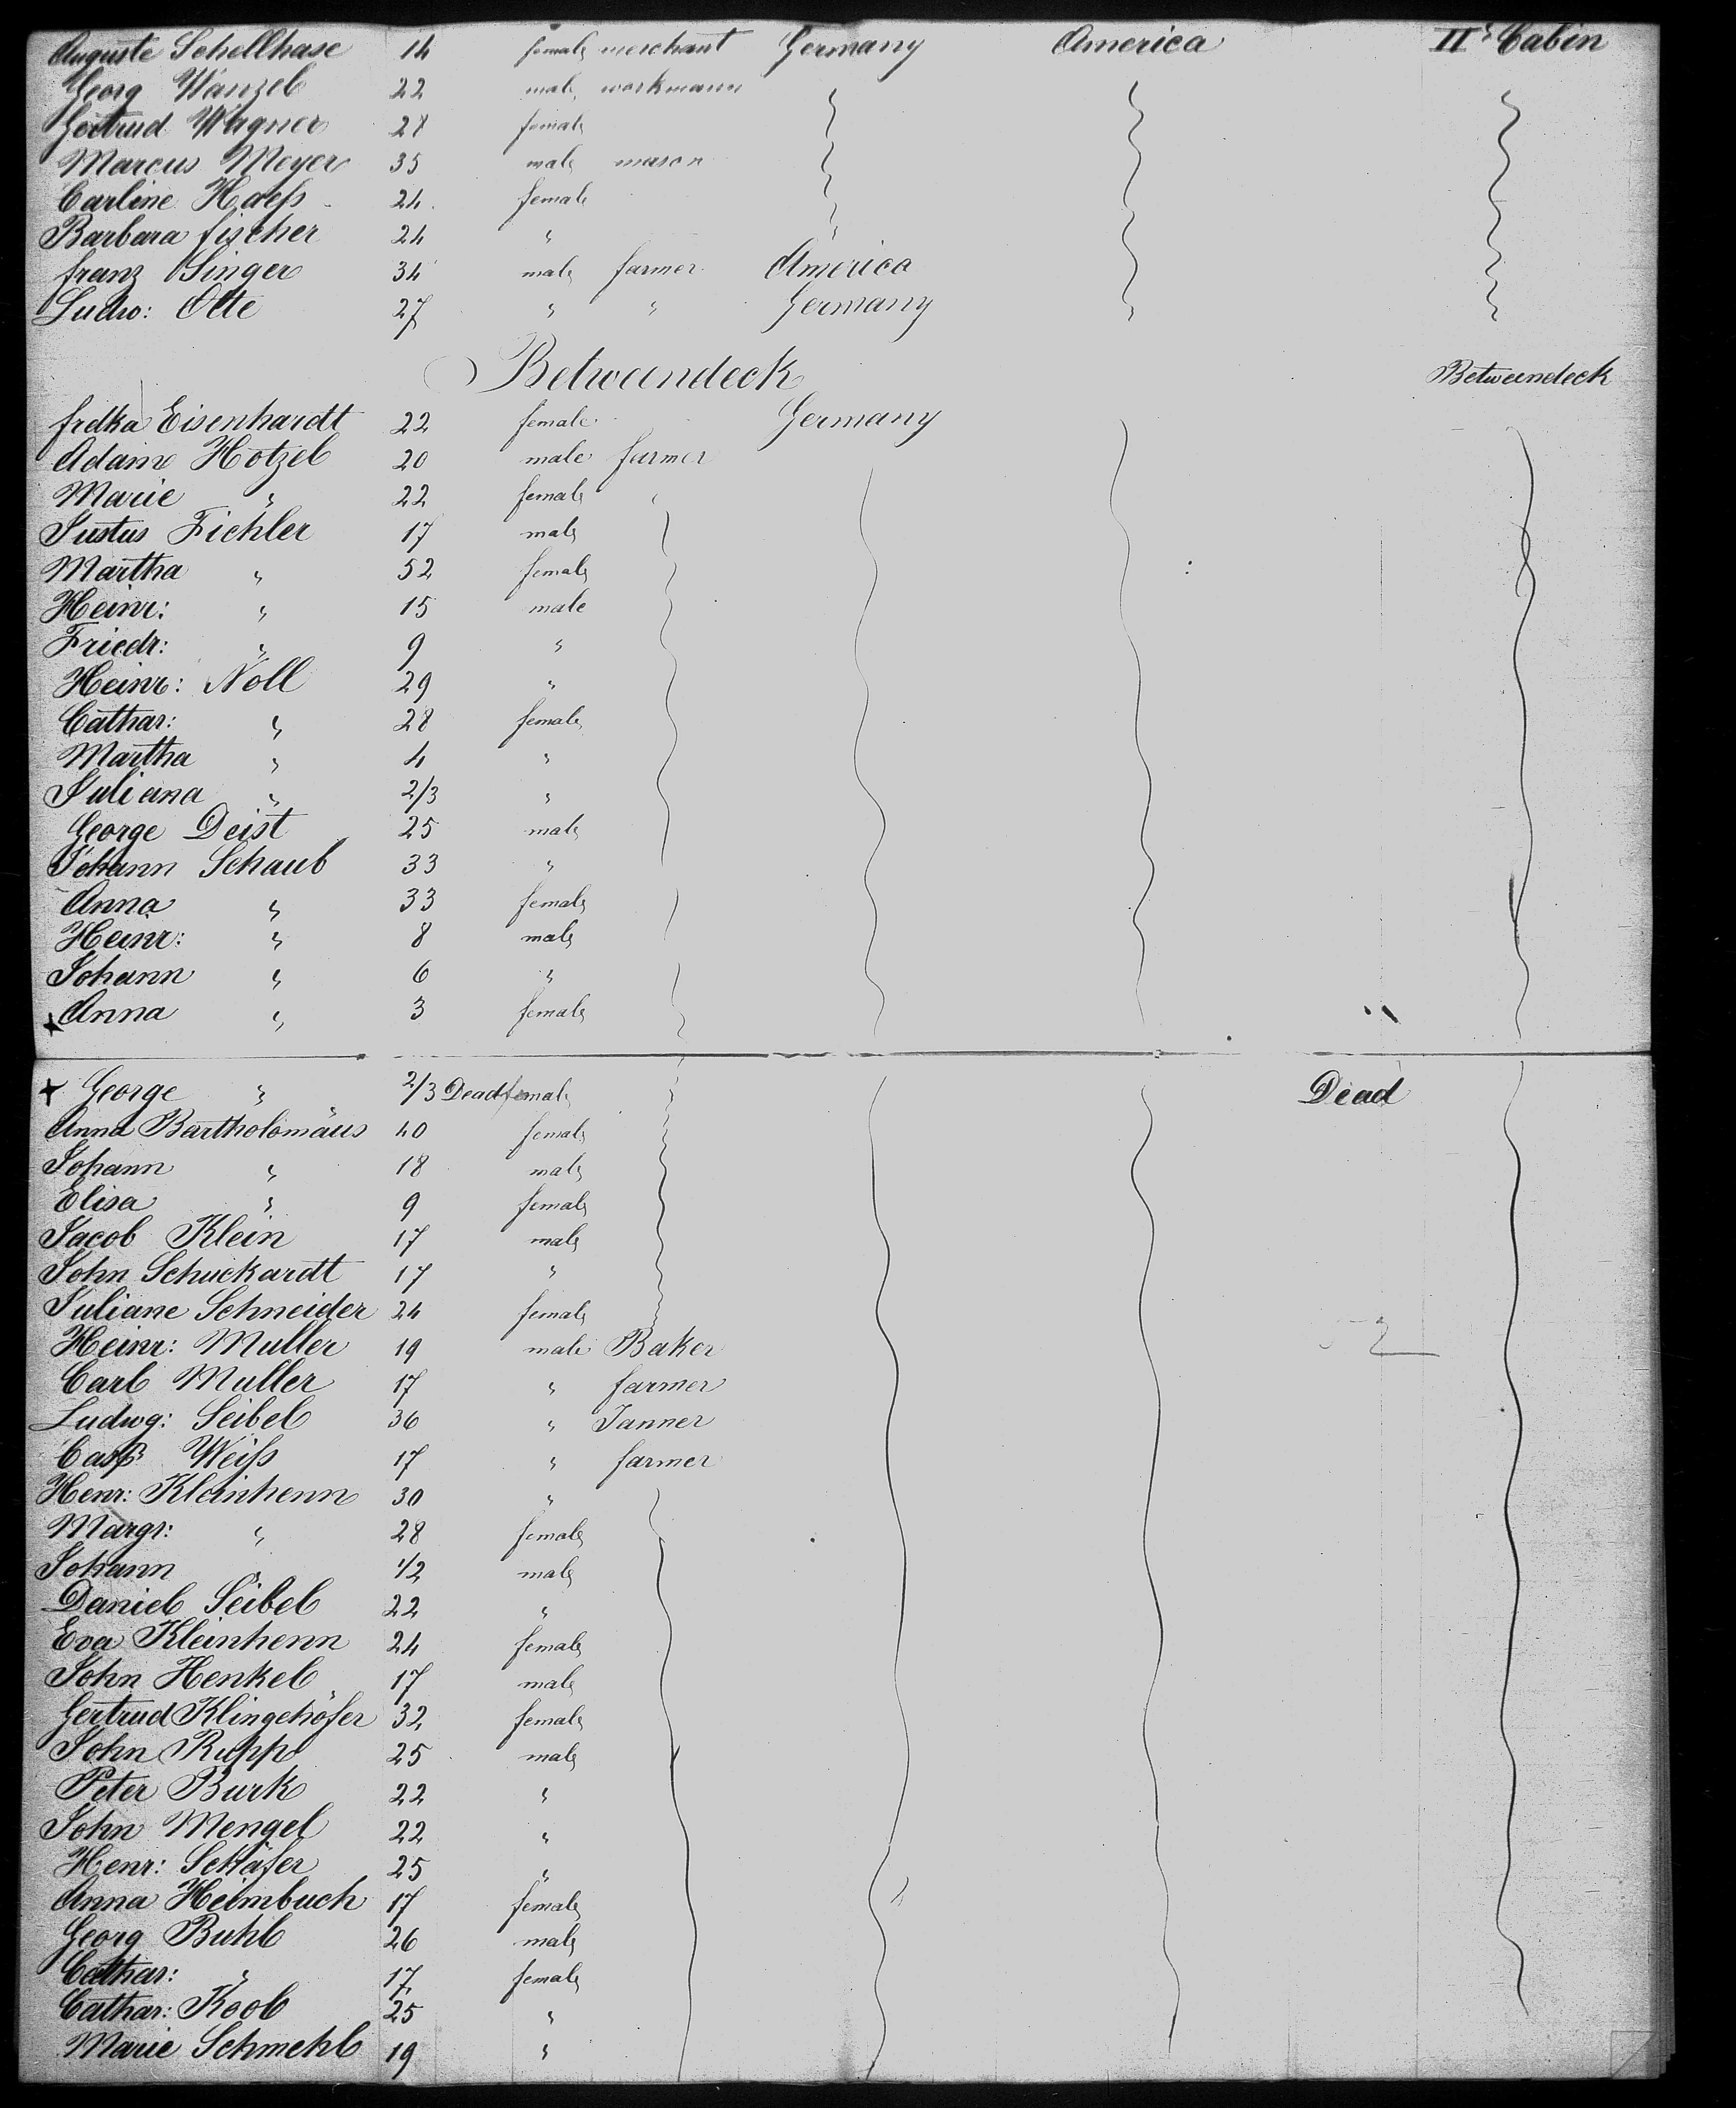 Auguste Schellhase 14 female merchant Germany America II Cabin
Georg Wanzel 22 male workmann
Gertrud Wagner 28 female
Marcus Meyer 35 male mason
Carline Haeß 24 female
Barbara Fischer 24 "
Franz Singer 34 male farmer America
Ludw: Otte 27 " " Germany
Betweendeck Betweendeck
Fredka Eisenhardt 22 female Germany
Adam Hotzel 20 male farmer
Marie " 22 female "
Justus Fichler 17 male
Martha " 52 female
Heinr: " 15 male
Friedr: " 9 "
Heinr: Noll 29 "
Cathar: " 28 female
Martha " 4 "
Juliana " 2/3 "
George Deist 25 male
Johann Schaub 33 "
Anna " 33 female
Heinr: " 8 male
Johann " 6 "
Anna " 3 female
George " 2/3 Dead female Dead
Anna Bartholomäus 40 female
Johann " 18 male
Elisa " 9 female
Jacob Klein 17 male
John Schuckardt 17 "
Juliane Schneider 24 female
Heinr: Muller 19 male Baker
Carl Muller 17 " farmer
Ludwg: Seibel 36 " Tanner
Casp Weiß 17 " farmer
Henr: Kleinhenn 30 "
Margr: " 28 female
Johann " 1/2 male
Daniel Seibel 22 "
Eva Kleinhenn 24 female
John Henkel 17 male
Gertrud Klingehöfer 32 female
John Rupp 25 male
Peter Burk 22 "
John Mengel 22 "
Henr: Schäfer 25 "
Anna Heimbuch 17 female
Georg Buhl 26 male
Cathar: " 17 female
Cathar: Koob 25 "
Marie Schmehl 19 "